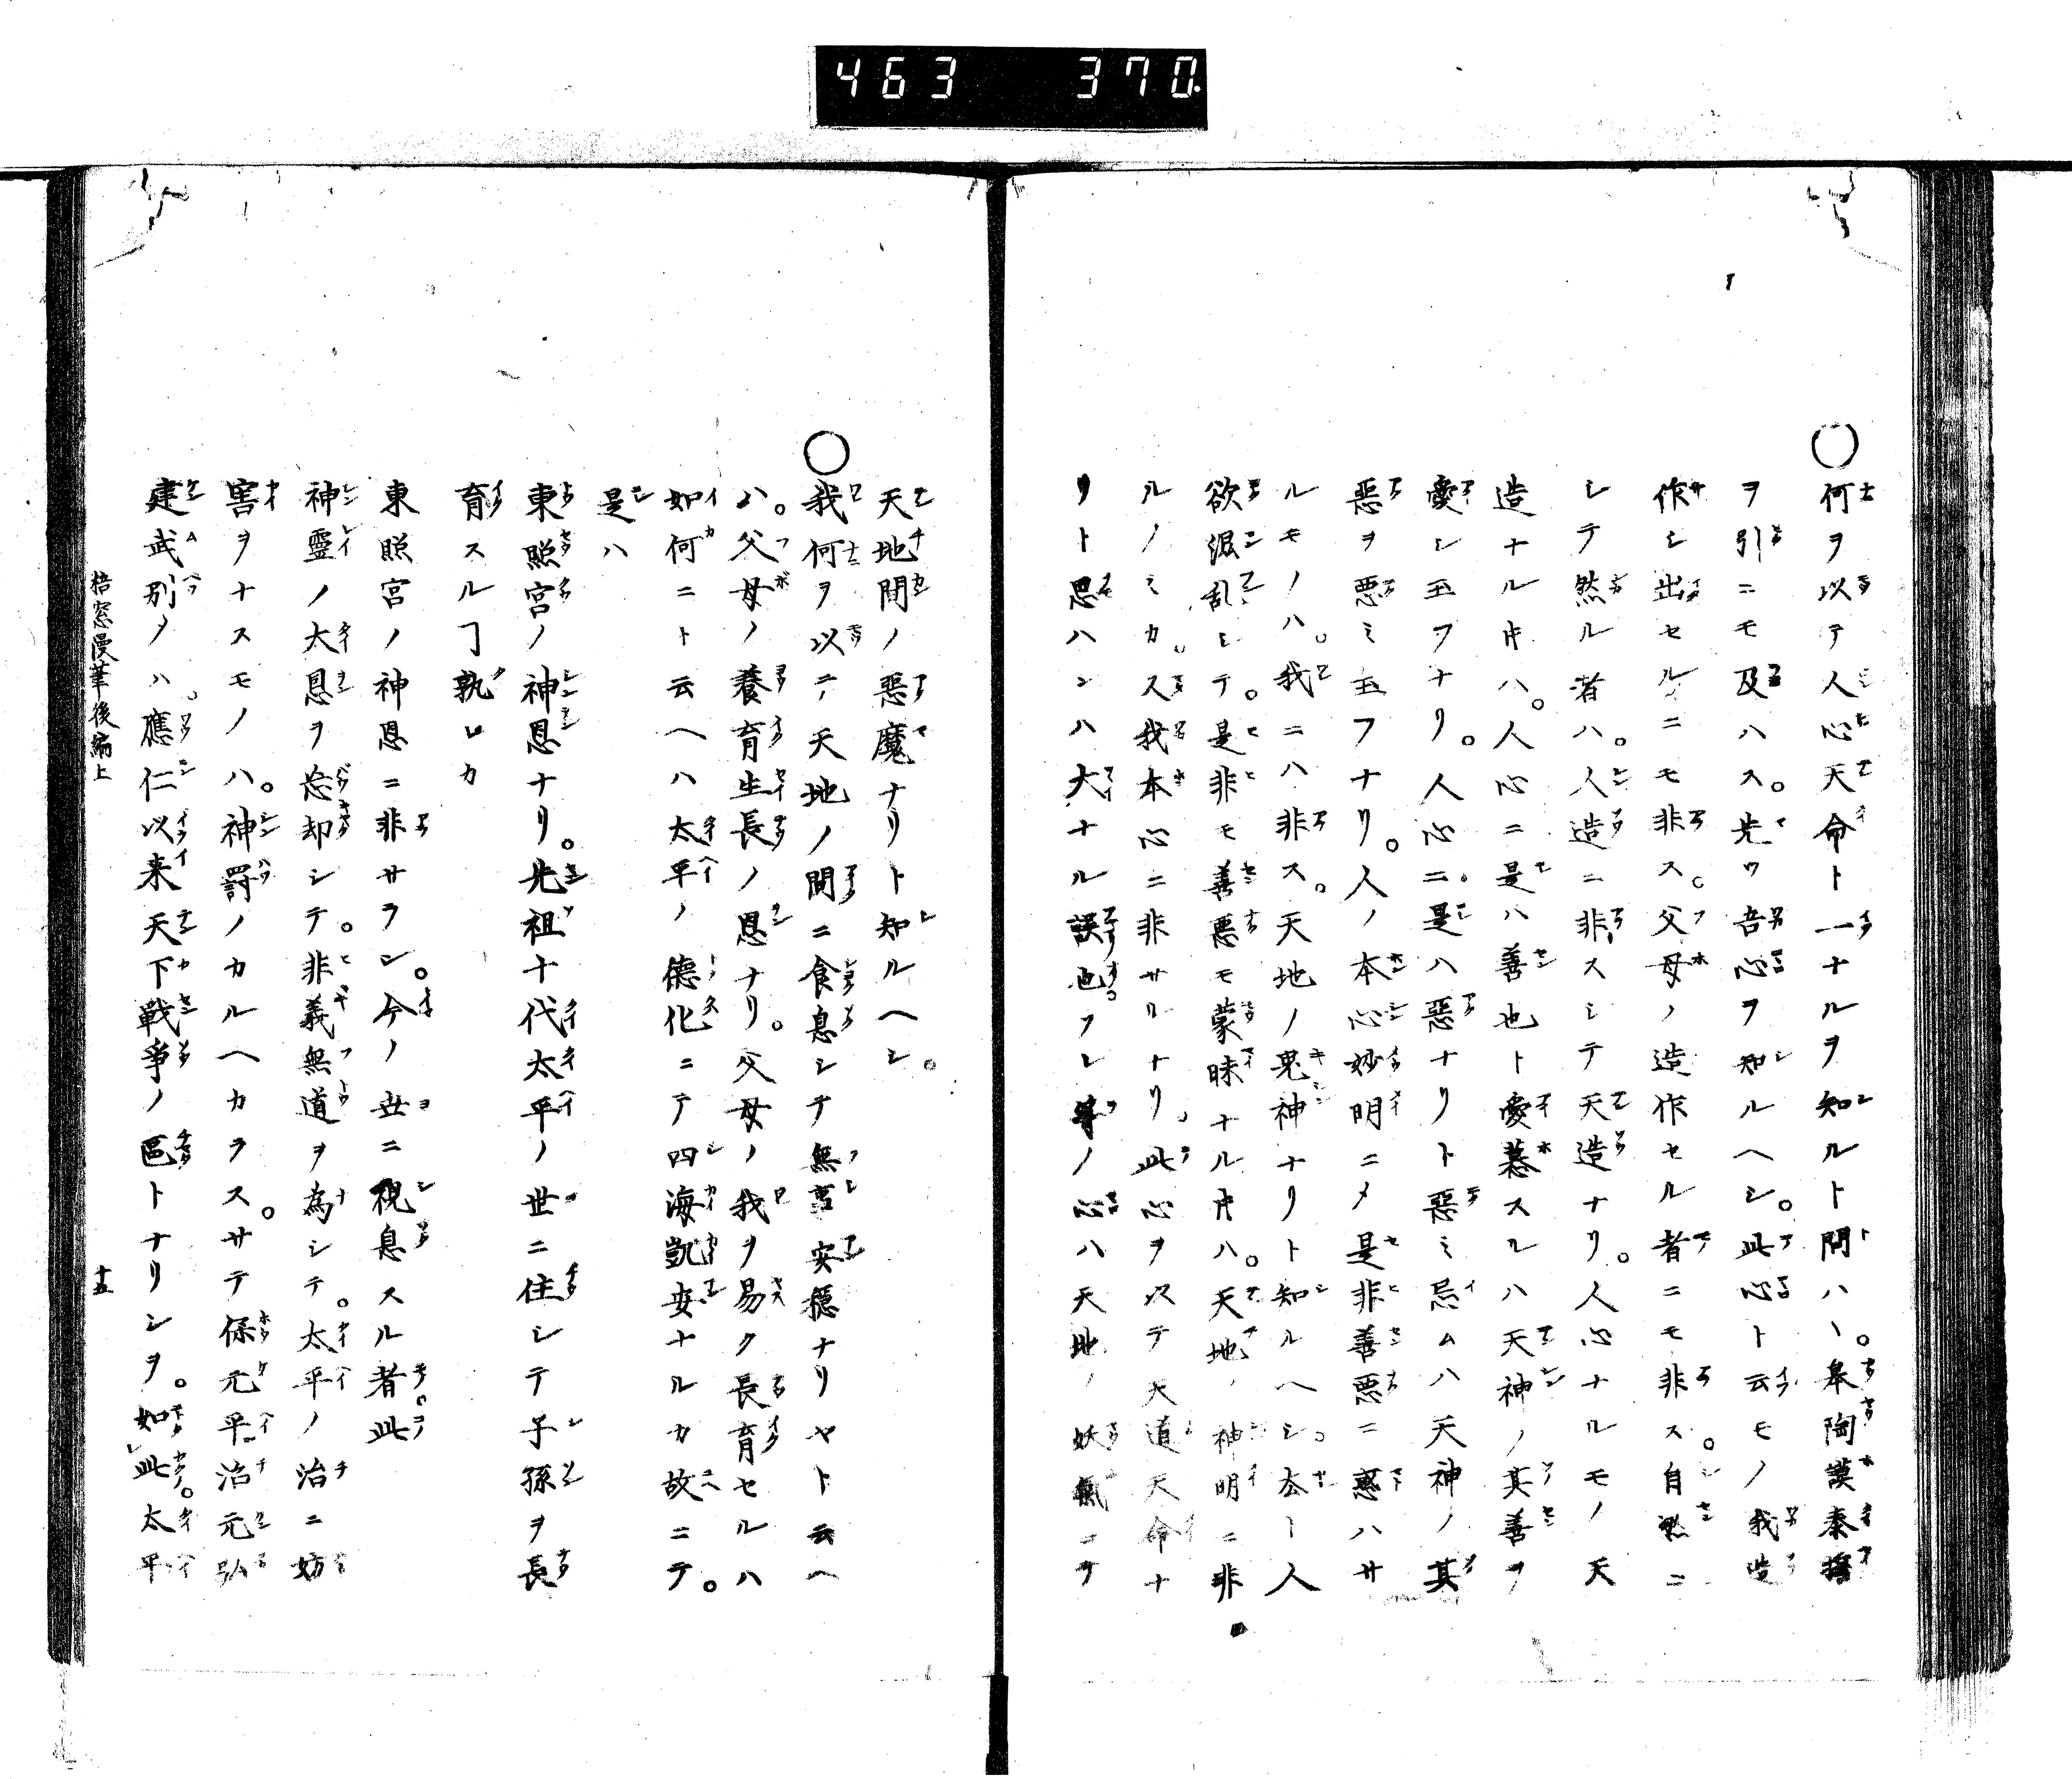 463 370.
○何ヲ以テ人心天命ト一ナルヲ知ルト問ハヽ。皋陶謨泰誓
ヲ引ニモ及ハス。先ツ吾心ヲ知ルヘシ。此心ト云モノ我造
作シ出セルニモ非ス。父母ノ造作セル者ニモ非ス。自然ニ
シテ然ル者ハ。人造ニ非スシテ天造ナリ。人心ナルモノ天
造ナル片ハ。人心ニ是ハ善也ト愛慕スルハ天神ノ其善ヲ
愛シ玉フナリ。人心ニ。是ハ惡ナリト惡ミ忌ムハ天神ノ其
惡ヲ悪ミ玉フナリ。人ノ本心妙明ニメ是非善悪ニ惑ハサ
ルモノハ。我ニハ非ス。天地ノ鬼神ナリト知ルヘシ。若シ人
欲混乱シテ。是非モ善悪モ蒙昧ナル片ハ。天地ノ神明ニ非
ルノミカ。又我本心ニ非サルナリ。此心ヲ以テ天道天命ナ
リト思ハンハ大ナル誤也。フレ等ノ心ハ天地ノ妖氣ニテ
天地間ノ惡魔ナリト知ルヘシ。
○我何ヲ以テ天地ノ間ニ食息シテ無事安穏ナリヤト云ヘ
ハ。父母ノ養育生長ノ恩ナリ。父母ノ我ヲ易ク長育セルハ
如何ニト云ヘハ太平ノ德化ニテ四海凱安ナルカ故ニテ。
是ハ
東照宮ノ神恩ナリ。先祖十代太平ノ世ニ住シテ子孫ヲ長
育スルヿ孰レカ
東照宮ノ神恩ニ非サラン。今ノ世ニ視息スル者此
神靈ノ大恩ヲ忘却シテ。非義無道ヲ為シテ。太平ノ治ニ妨
害ヲナスモノハ。神罰ノカルヘカラス。サテ保元平治元弘
建武別ノハ。應仁以来天下戦争ノ區トナリシヲ。如此。太平
梧窓漫筆後編上 十五